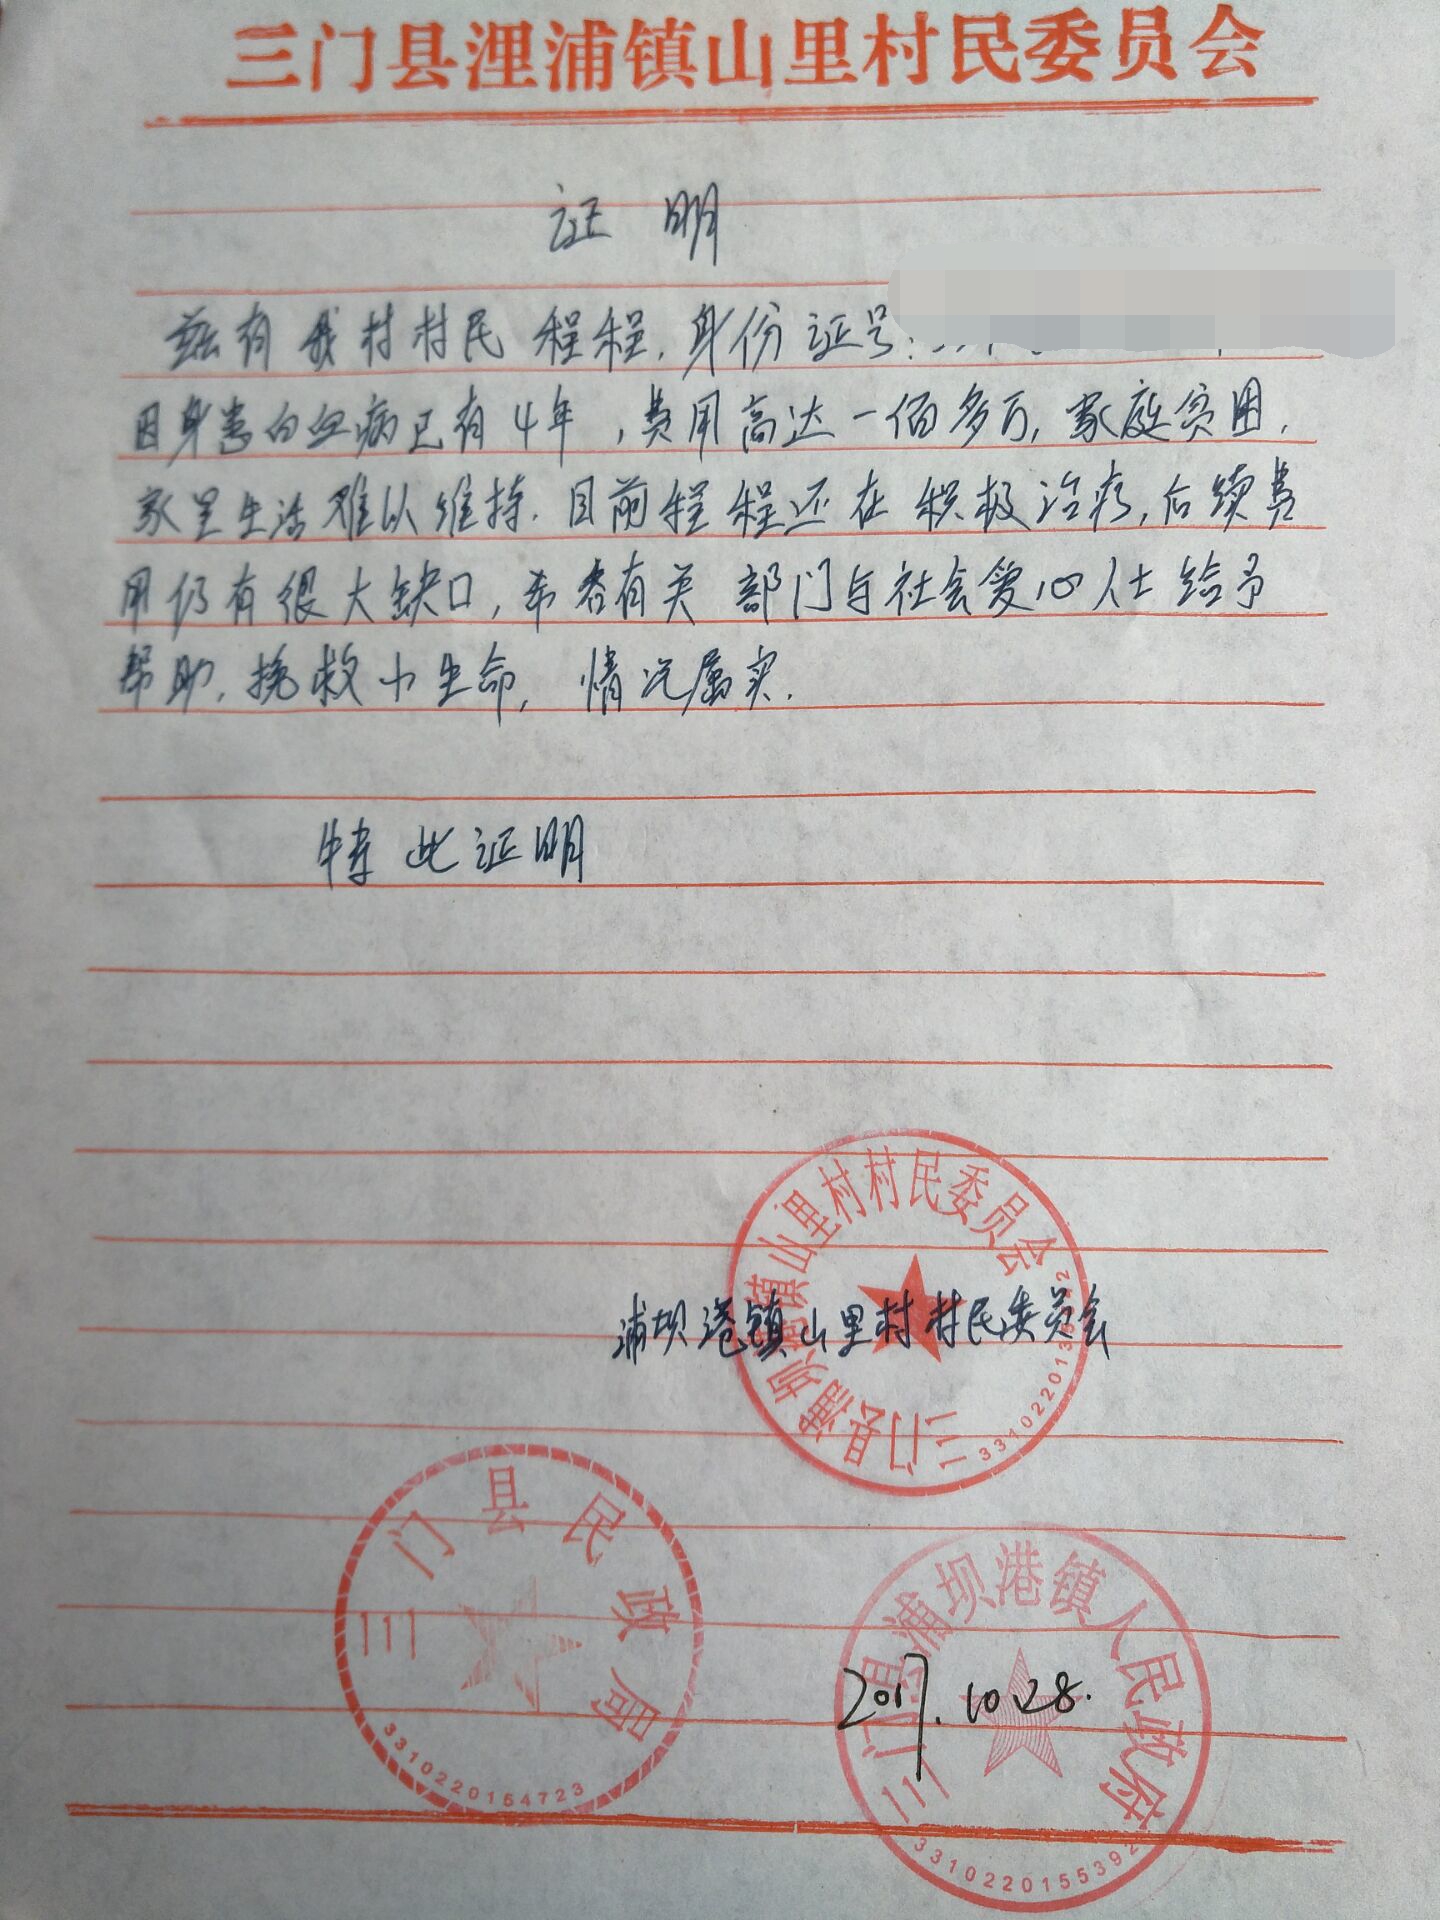 三门县浬浦镇山里村民委员会
证明
兹有我村村民程程,身份证号:
因身患白血病已有4年,费用高达一佰多万,家庭贫困.
家里生活难以维持.目前程程还在积极治疗,后续费
用仍有很大缺口,希各有关部门与社会爱心人士给予
帮助.挽救小生命,情况属实.
特此证明
三门县浦坝港镇山里村村民委员会
浦坝港镇山里村村民委员会
三门县民政局
3310220164723
三门县浦坝港镇人民政府
2017.10.28.
3310220155392